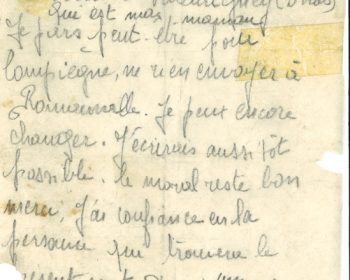 qui est mas maman
Je pars peut-être pour
Compiègne, ne rien envoyer à
Romainville. Je peux encore
changer. J'écrirais aussitôt
possible. le moral reste bon
merci, J'ai confiance en la
personne qui trouvera le